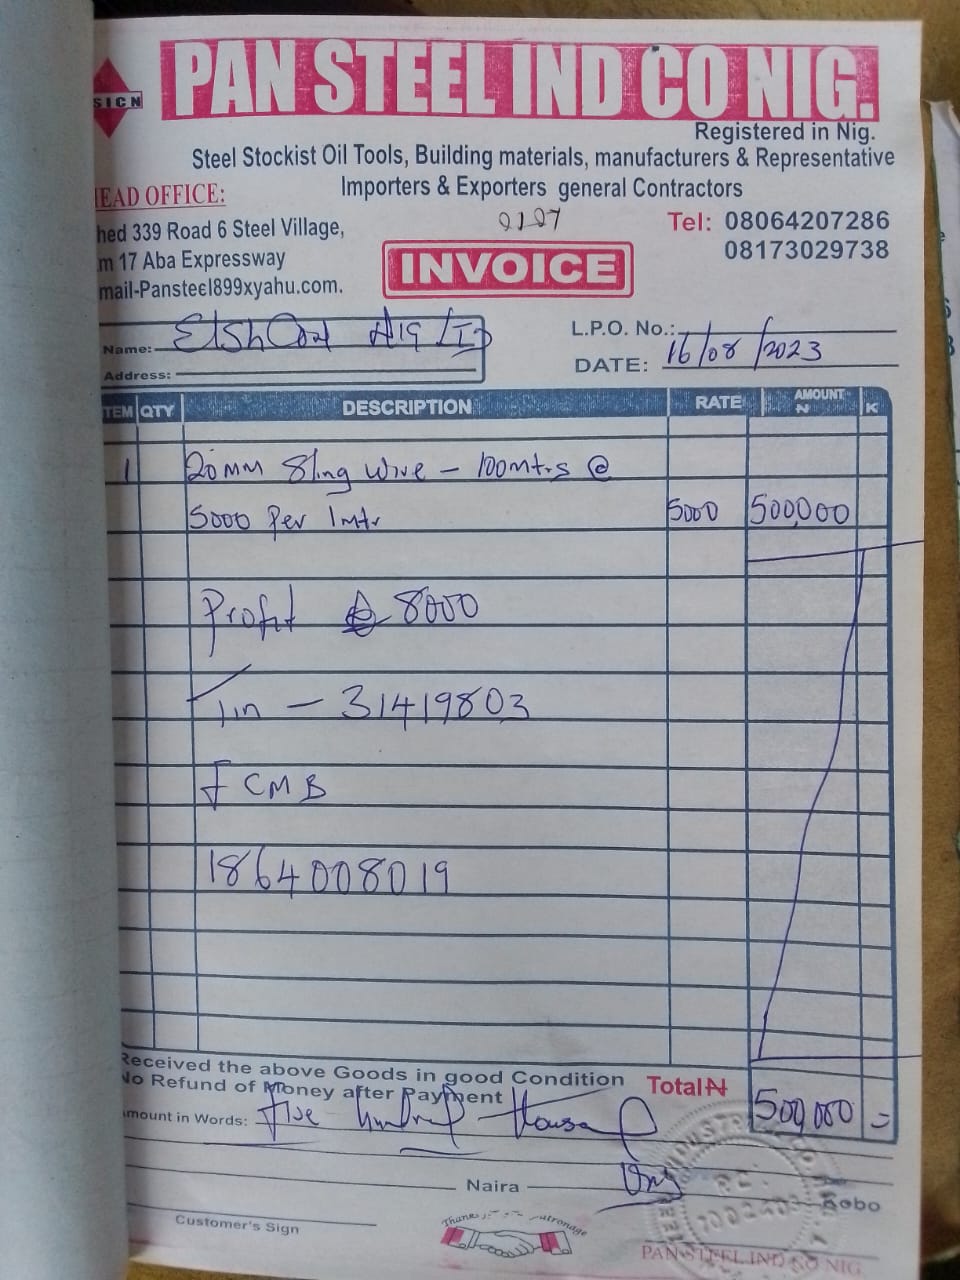 SIGN
PAN STEEL IND CO NIG.
Registered in Nig.
Steel Stockist Oil Tools, Building materials, manufacturers & Representative
Importers & Exporters general Contractors
EAD OFFICE:
hed 339 Road 6 Steel Village,
m 17 Aba Expressway
mail-Pansteel899xyahu.com.
0127
Tel: 08064207286
08173029738
INVOICE
Name:
Address:
L.P.O. No.:
DATE: 16/08/2023
TEM QTY DESCRIPTION RATE AMOUNT ₦ K
1 20mm Sling Wire - 100mtrs @
5000 Per 1mtr 5000 500,000
Profit 8000
Tin - 31419803
FCMB
1864008019
Received the above Goods in good Condition
No Refund of Money after Payment
Total ₦ 500,000 =
mount in Words: Five Hundred Thousand
Only
Naira
Kobo
Customer's Sign
Thanks Patronage
PAN STEEL IND CO NIG.